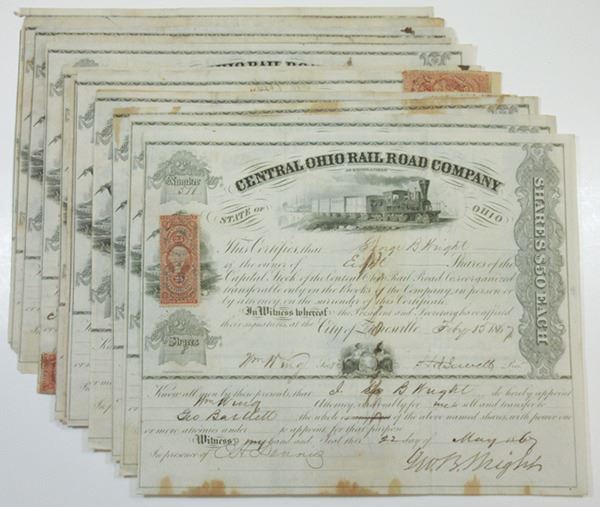 OHIO RAIL ROAD
Number
CENTRAL OHIO RAIL ROAD COMPANY
AS REORGANIZED
STATE OF OHIO
SHARES $50 EACH
This Certifies, that George B Wright
is the owner of Shares of the
Capital Stock of the Central Ohio Rail Road Co. as reorganized
transferable only on the Books of the Company, in person or
by attorney on the surrender of this Certificate.
In Witness whereof the President and Secretary have certified
their signatures, at the City of Zanesville Feby 13 1867
Wm Wing
Shares
Know all men by these presents, that I Geo B Wright do hereby appoint
Wm Wing Attorney, and only for me to sell and transfer to
Geo Bartlett the whole of the above named shares, with power one
or more attornies under to appoint for that purpose
Witness my hand and Seal this 22 day of May 1867
In presence of
Geo. B. Wright